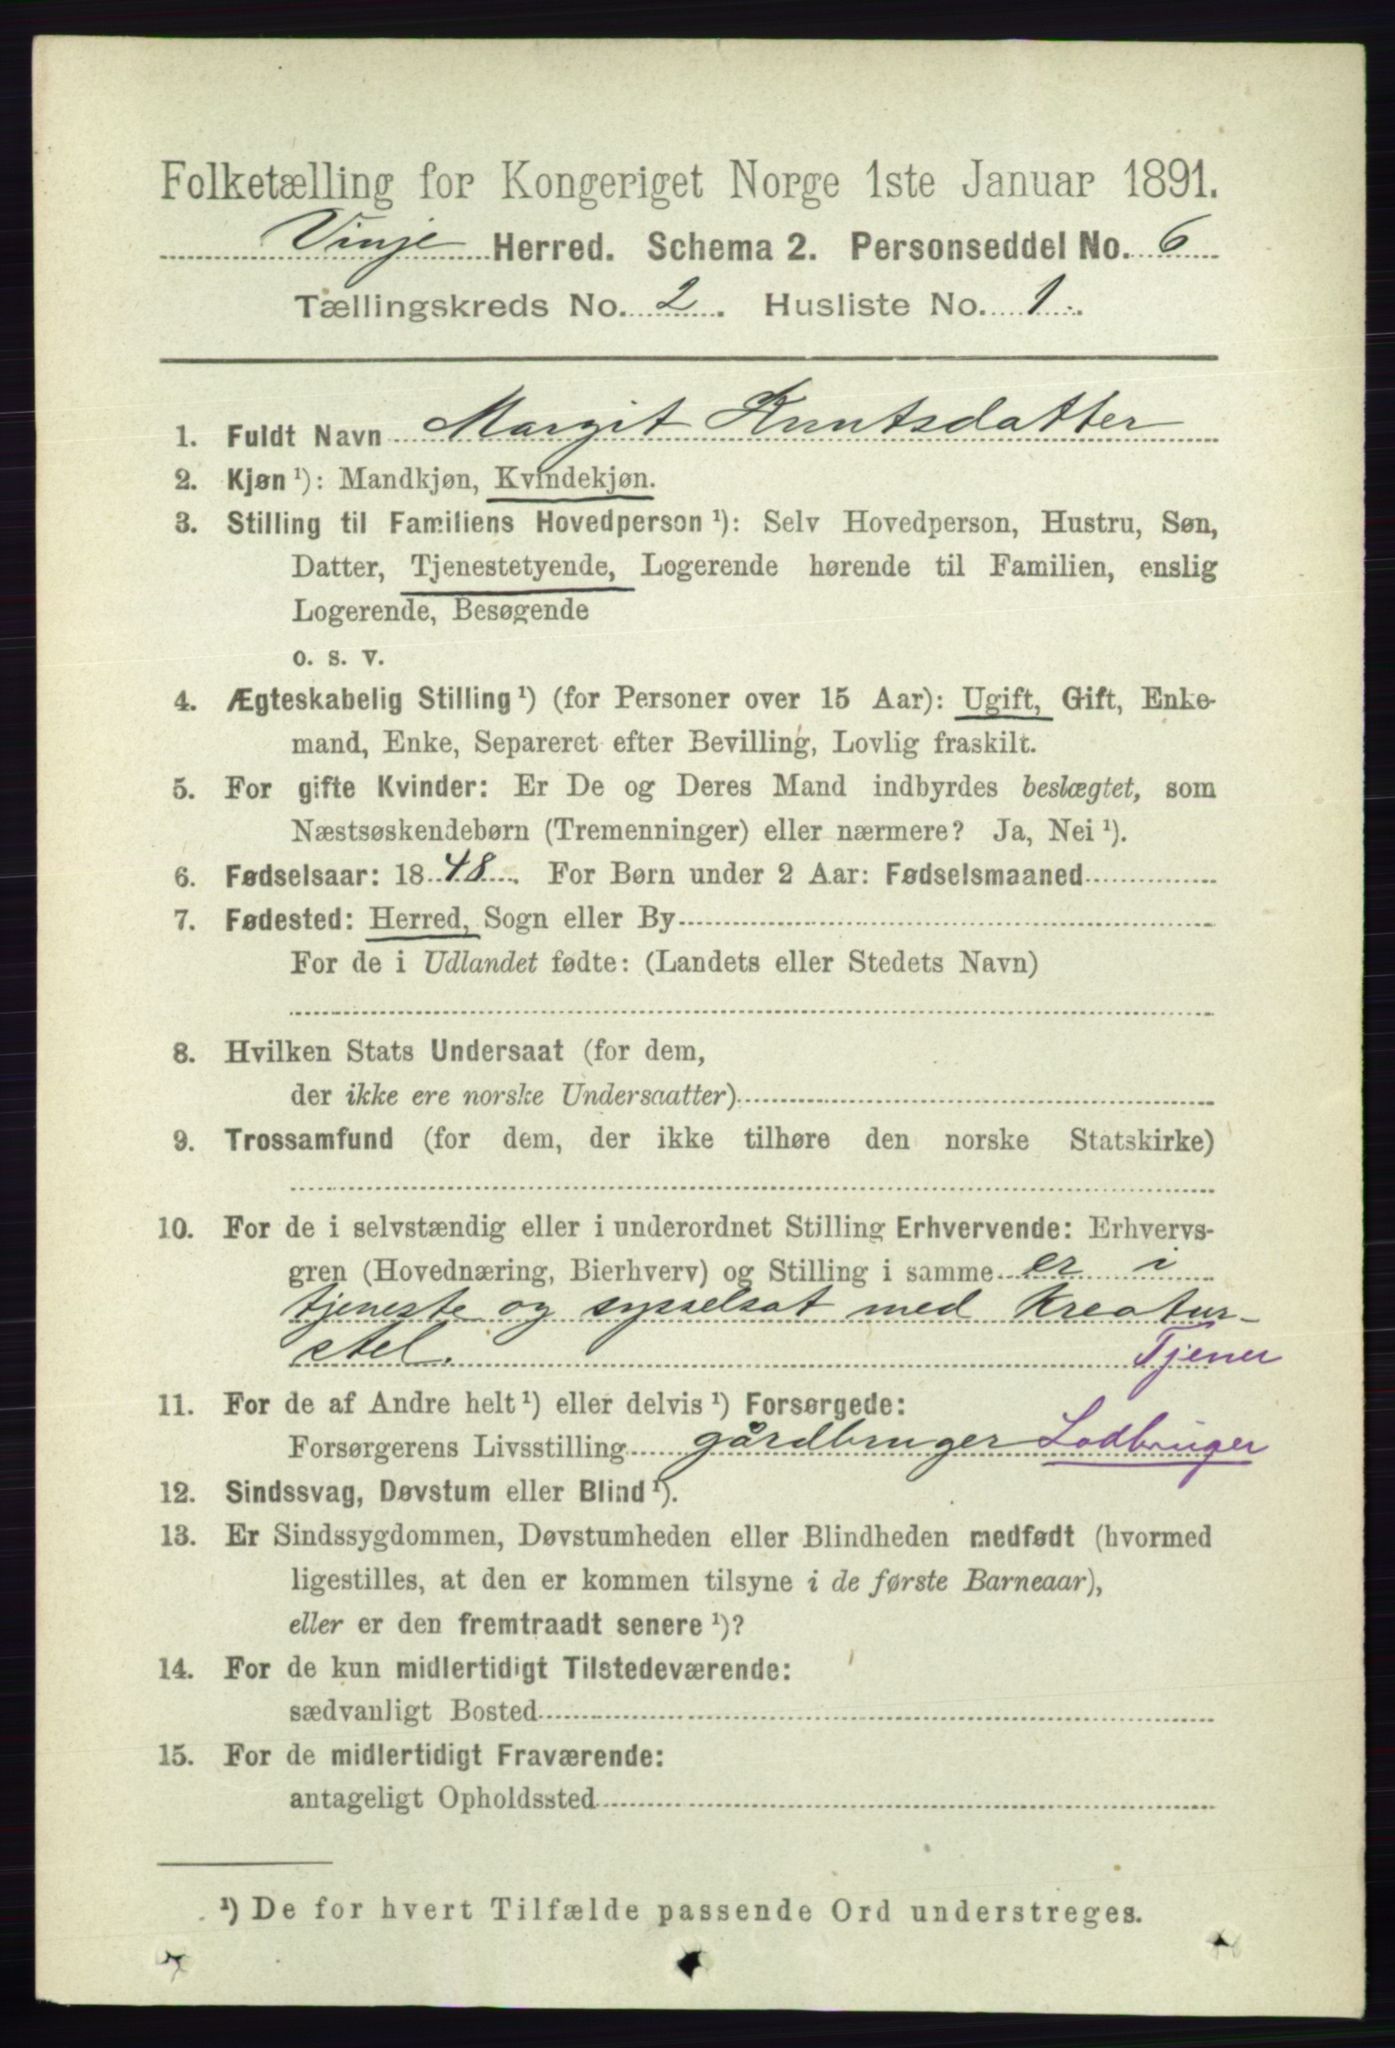 Folketælling for Kongeriget Norge 1ste Januar 1891.
Vinje Herred. Schema 2. Personseddel No. 6
Tællingskreds No. 2. Husliste No. 1.
1. Fuldt Navn Margit Knutsdatter
2. Kjøn ¹): Mandkjøn, Kvindekjøn.
3. Stilling til Familiens Hovedperson ¹): Selv Hovedperson, Hustru, Søn,
Datter, Tjenestetyende, Logerende hørende til Familien, enslig
Logerende, Besøgende
o. s. v.
4. Ægteskabelig Stilling ¹) (for Personer over 15 Aar): Ugift, Gift, Enke-
mand, Enke, Separeret efter Bevilling, Lovlig fraskilt.
5. For gifte Kvinder: Er De og Deres Mand indbyrdes beslægtet, som
Næstsøskendebørn (Tremenninger) eller nærmere? Ja, Nei ¹).
6. Fødselsaar: 1848. For Børn under 2 Aar: Fødselsmaaned
7. Fødested: Herred, Sogn eller By
For de i Udlandet fødte: (Landets eller Stedets Navn)
8. Hvilken Stats Undersaat (for dem,
der ikke ere norske Undersaatter)
9. Trossamfund (for dem, der ikke tilhøre den norske Statskirke)
10. For de i selvstændig eller i underordnet Stilling Erhvervende: Erhvervs-
gren (Hovednæring, Bierhverv) og Stilling i samme er i
tjeneste og sysselsat med Kreatur-
stel. Tjener
11. For de af Andre helt ¹) eller delvis ¹) Forsørgede:
Forsørgerens Livsstilling gårdbruger Lodbruger
12. Sindssvag, Døvstum eller Blind ¹).
13. Er Sindssygdommen, Døvstumheden eller Blindheden medfødt (hvormed
ligestilles, at den er kommen tilsyne i de første Barneaar),
eller er den fremtraadt senere ¹)?
14. For de kun midlertidigt Tilstedeværende:
sædvanligt Bosted
15. For de midlertidigt Fraværende:
antageligt Opholdssted
¹) De for hvert Tilfælde passende Ord understreges.